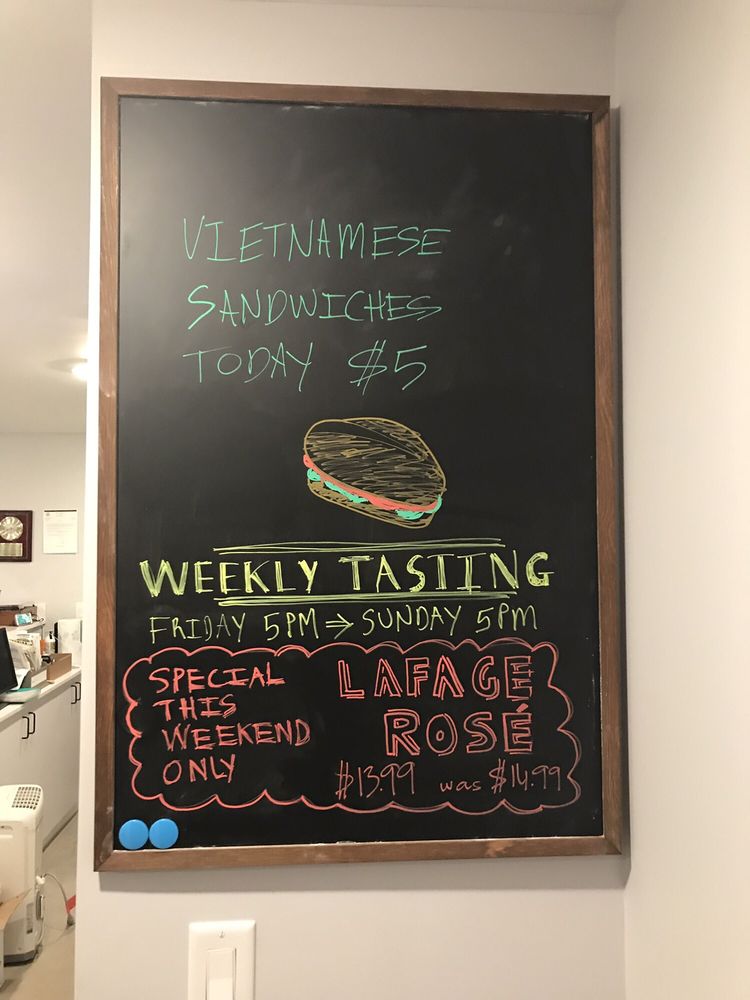 VIETNAMESE
SANDWICHES
TODAY $5
WEEKLY TASTING
FRIDAY 5PM → SUNDAY 5PM
SPECIAL
THIS
WEEKEND
ONLY
LAFAGE
ROSÉ
$13.99 was $14.99